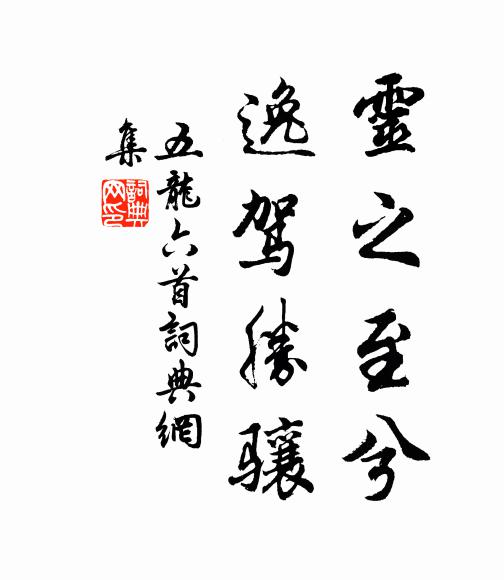 靈之至兮
逸驾勝骧
五龍六首詞典網
集
詞典
网印